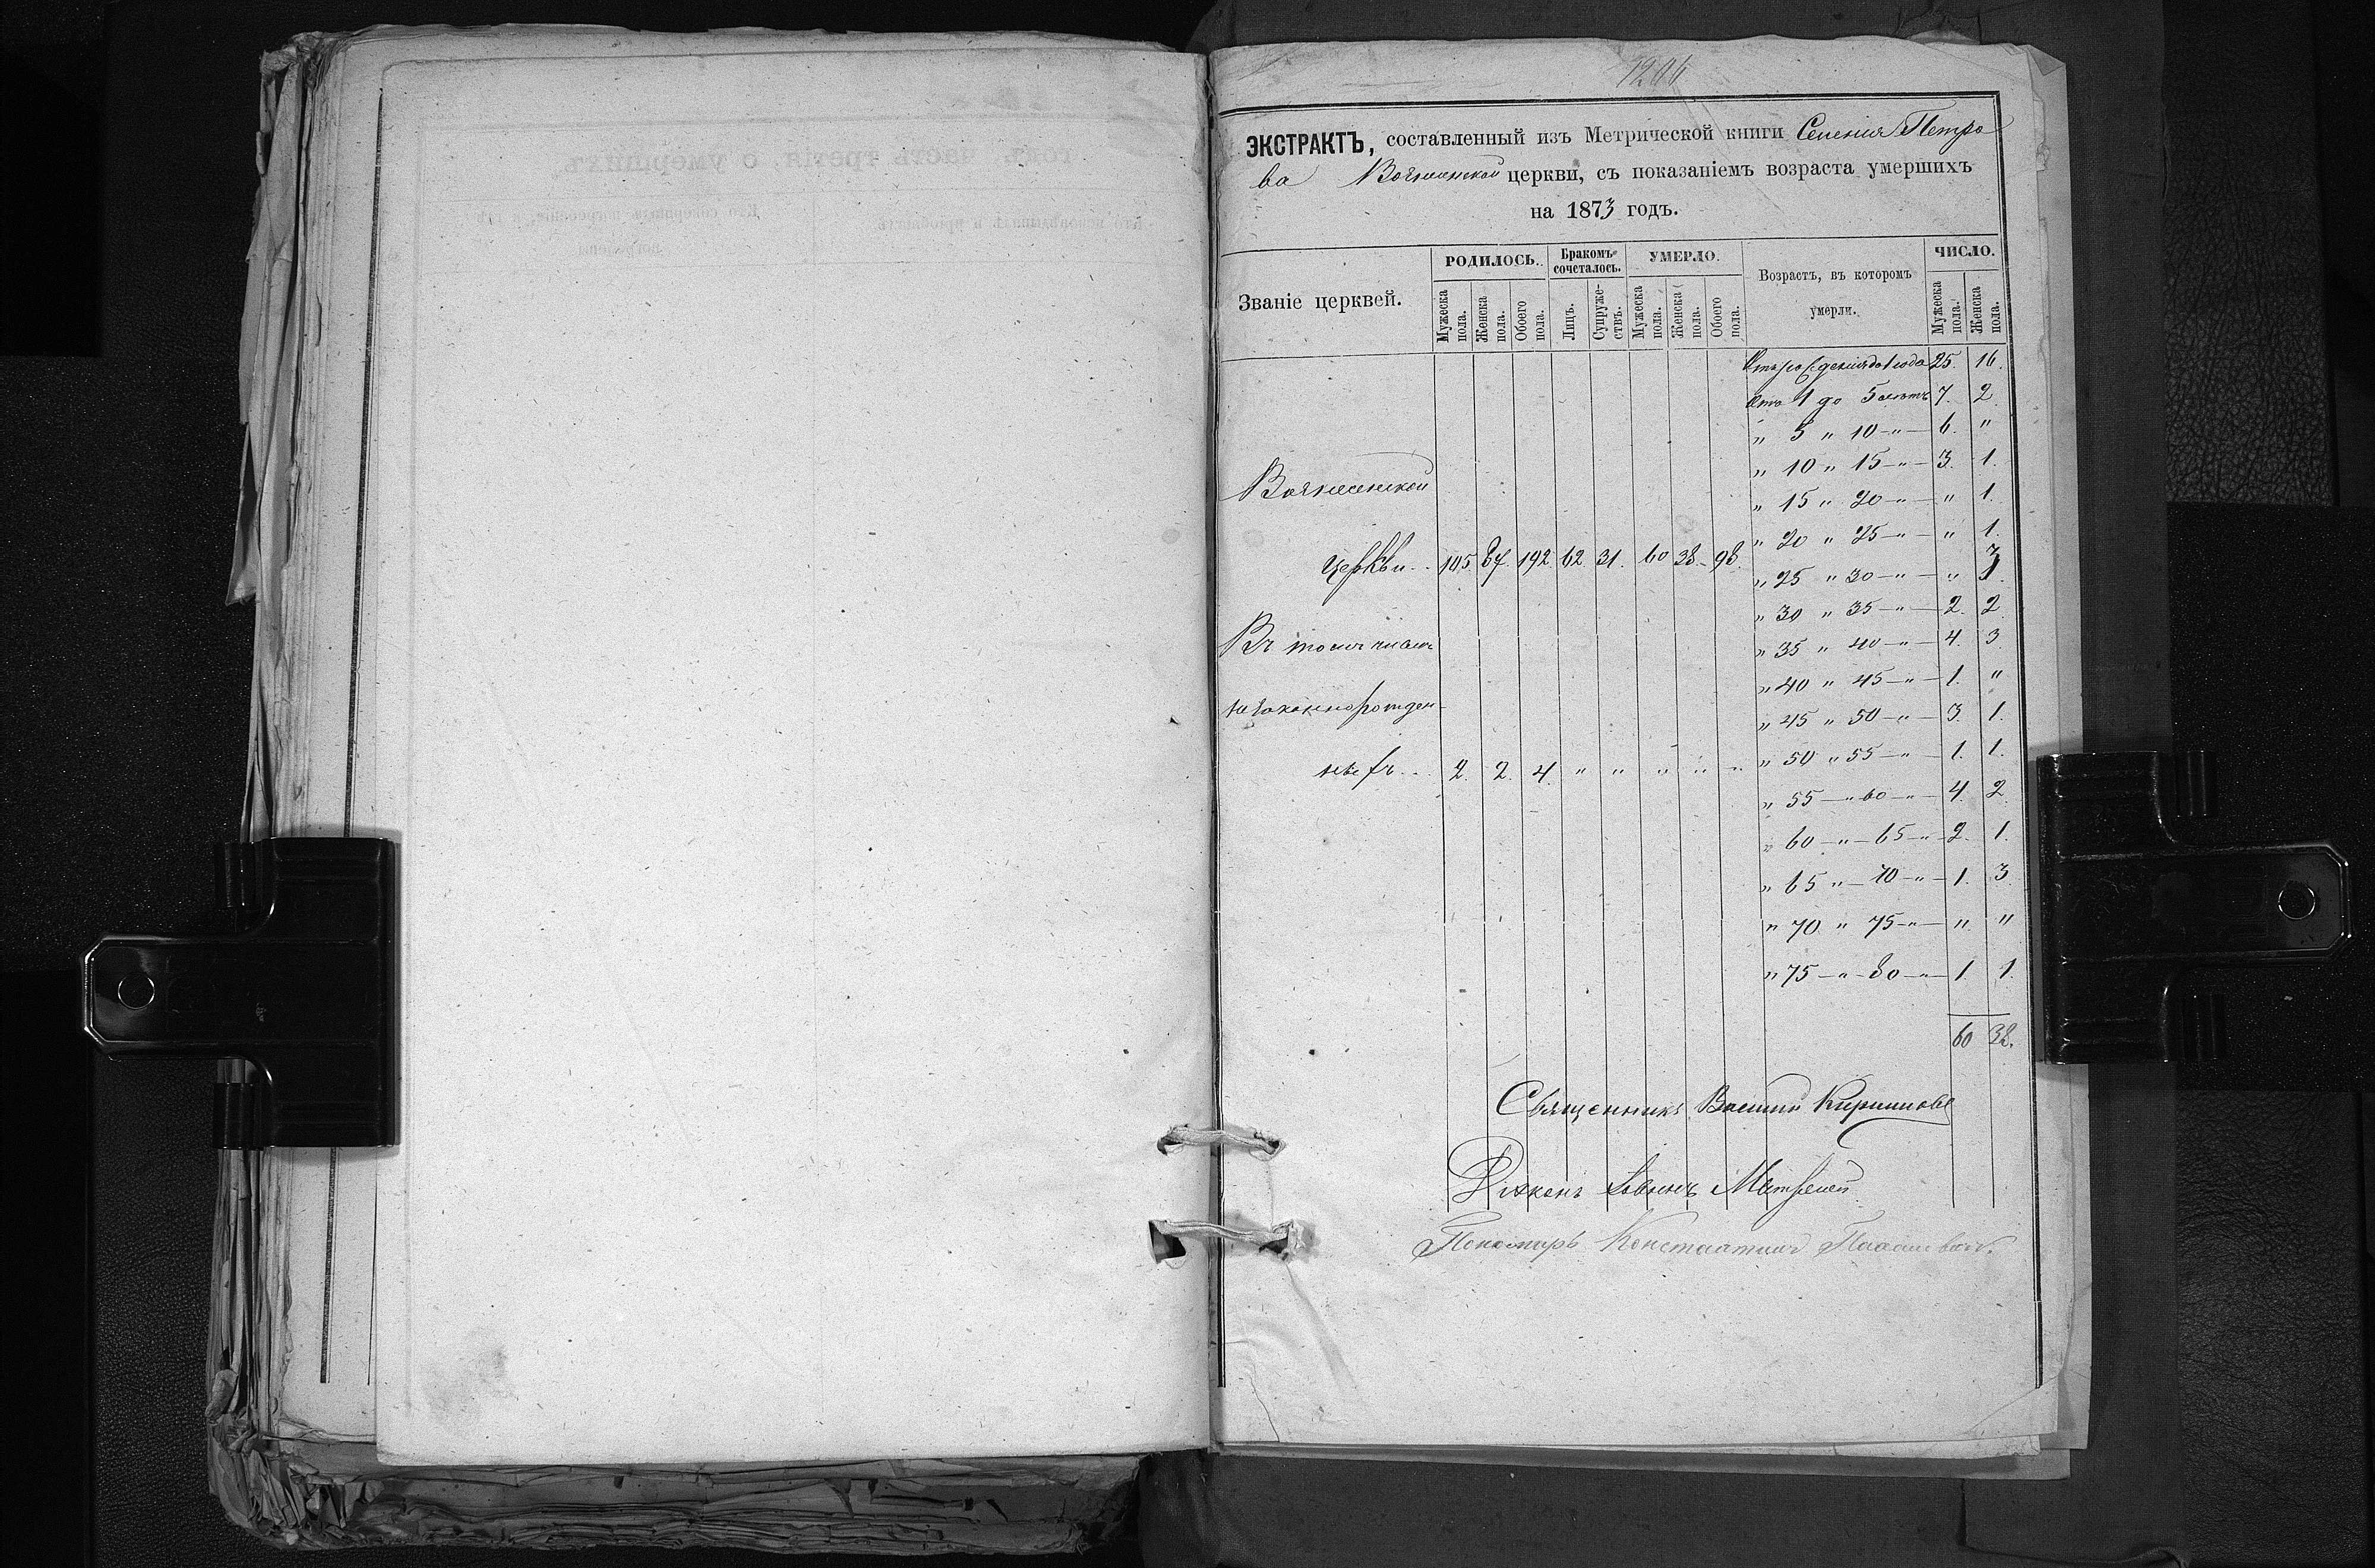 1206
ЭКСТРАКТЪ, составленный изъ Метрической книги Селенія Петро
ва Вознесенской церкви, съ показаніемъ возраста умершихъ
на 1873 годъ.
Званіе церквей.
РОДИЛОСЬ.
Бракомъ сочеталось.
УМЕРЛО.
Возрастъ, въ которомъ умерли.
ЧИСЛО.
Мужеска пола. Женска пола. Обоего пола. Лицъ. Супруже-ствъ. Мужеска пола. Женска пола. Обоего пола. Мужеска пола. Женска пола.
Отъ рожденія до 1 года 25. 16.
Отъ 1 до 5 летъ 7. 2.
" 5 " 10 - " - 6. "
" 10 " 15 - " - 3. 1.
Вознесенской
" 15 " 20 - " - " 1.
" 20 " 25 - " - " 1.
Церкви.. 105 87. 192. 62. 31. 60 38. 98.
" 25 " 30 - " - " 3.
" 30 " 35 - " - 2. 2.
Въ томъ числѣ
" 35 " 40 - " - 4. 3.
" 40 " 45 - " - 1. "
незаконнорожден-
" 45 " 50 - " - 3. 1.
" 50 " 55 - " - 1. 1.
ныхъ... 2. 2. 4. " " " " "
" 55 - " 60 - " - 4. 2.
" 60 - " - 65 - " - 2. 1.
" 65 " - 70 - " - 1. 3.
" 70 " 75 - " - " "
" 75 - " - 80 - " - 1. 1.
60 38.
Священникъ Василій Кириловъ
Діаконъ Іоаннъ
Пономарь Константинъ